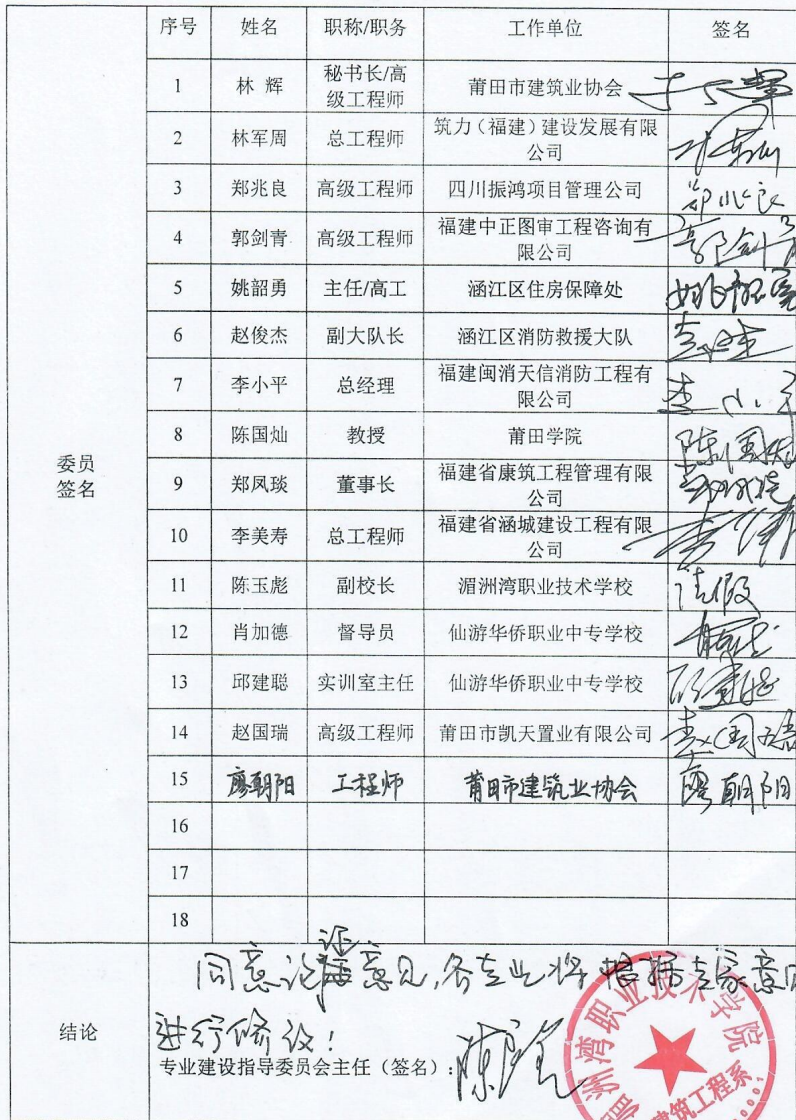 序号 姓名 职称/职务 工作单位 签名
1 林 辉 秘书长/高级工程师 莆田市建筑业协会
2 林军周 总工程师 筑力(福建)建设发展有限公司
3 郑兆良 高级工程师 四川振鸿项目管理公司 郑兆良
4 郭剑青 高级工程师 福建中正图审工程咨询有限公司 郭剑青
5 姚韶勇 主任/高工 涵江区住房保障处 姚韶勇
6 赵俊杰 副大队长 涵江区消防救援大队
7 李小平 总经理 福建闽消天信消防工程有限公司 李小平
8 陈国灿 教授 莆田学院 陈国灿
9 郑凤琰 董事长 福建省康筑工程管理有限公司
10 李美寿 总工程师 福建省涵城建设工程有限公司
11 陈玉彪 副校长 湄洲湾职业技术学校 请假
12 肖加德 督导员 仙游华侨职业中专学校
13 邱建聪 实训室主任 仙游华侨职业中专学校
14 赵国瑞 高级工程师 莆田市凯天置业有限公司 赵国瑞
15 廖朝阳 工程师 莆田市建筑业协会 廖朝阳
16
17
18
委员
签名
结论
同意论证意见,各专业将根据专家意见
进行修改!
专业建设指导委员会主任(签名):
洲湾职业技术学院
建筑工程系